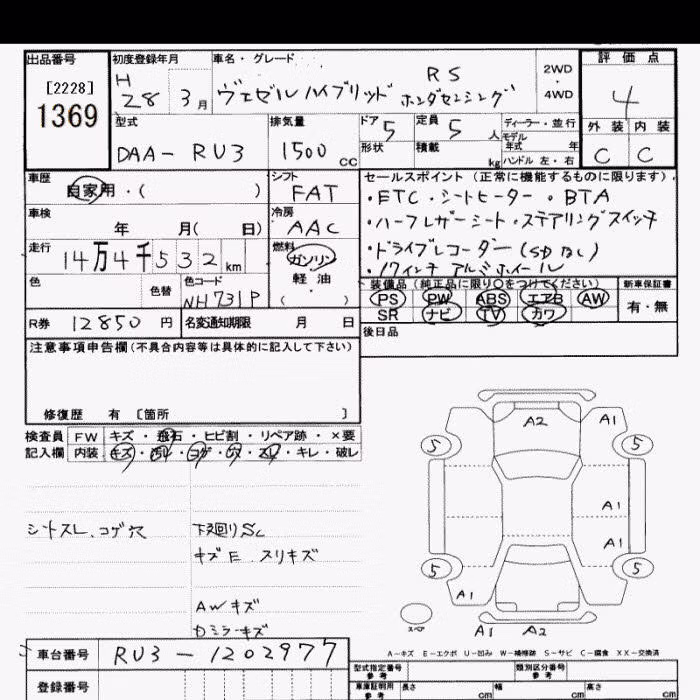 出品番号 初度登録年月 車名・グレード 2WD・4WD 評価点
[2228]
1369
H 28 3月 ヴェゼル ハイブリッド RS ホンダセンシング 4
型式 排気量 ドア 5 定員 5人 ディーラー・並行 外装 内装
モデル年式 年
DAA-RU3 1500cc 形状 積載 kg ハンドル 左・右 C C
車歴 シフト セールスポイント(正常に機能するものに限ります)
自家用・( ) FAT ・ETC・シートヒーター・BTA
車検 冷房 ・ハーフレザーシート・ステアリングスイッチ
年 月( 日) AAC ・ドライブレコーダー(SDなし)
走行 燃料 ・17インチアルミホイール
14万4千532km ガソリン
軽油
・( )
色 色替 色コード 装備品(純正品に限り○をつけてください) 新車保証書
NH731P PS PW ABS エアB AW 有・無
SR ナビ TV カワ
R券 12850円 名変通知期限 月 日 後日品
注意事項申告欄(不具合内容等は具体的に記入して下さい)
修復歴 有 [箇所 ]
検査員 FW キズ・飛石・ヒビ割・リペア跡・×要
記入欄 内装 キズ・汚レ・コゲ・穴・スレ・キレ・破レ
シートスレ、コゲ穴 下廻りSC
キズE スリキズ
AWキズ
Dミラーキズ
A2 A1
5 5
A1
A1
5 5
A1
スペア
A1 A2
A-キズ E-エクボ U-凹み W-補修跡 S-サビ C-腐食 XX-交換済
車台番号 RU3-1202977
型式指定番号 参考 類別区分番号 参考
登録番号 車庫証明用 参考 長さ cm 幅 cm 高さ cm